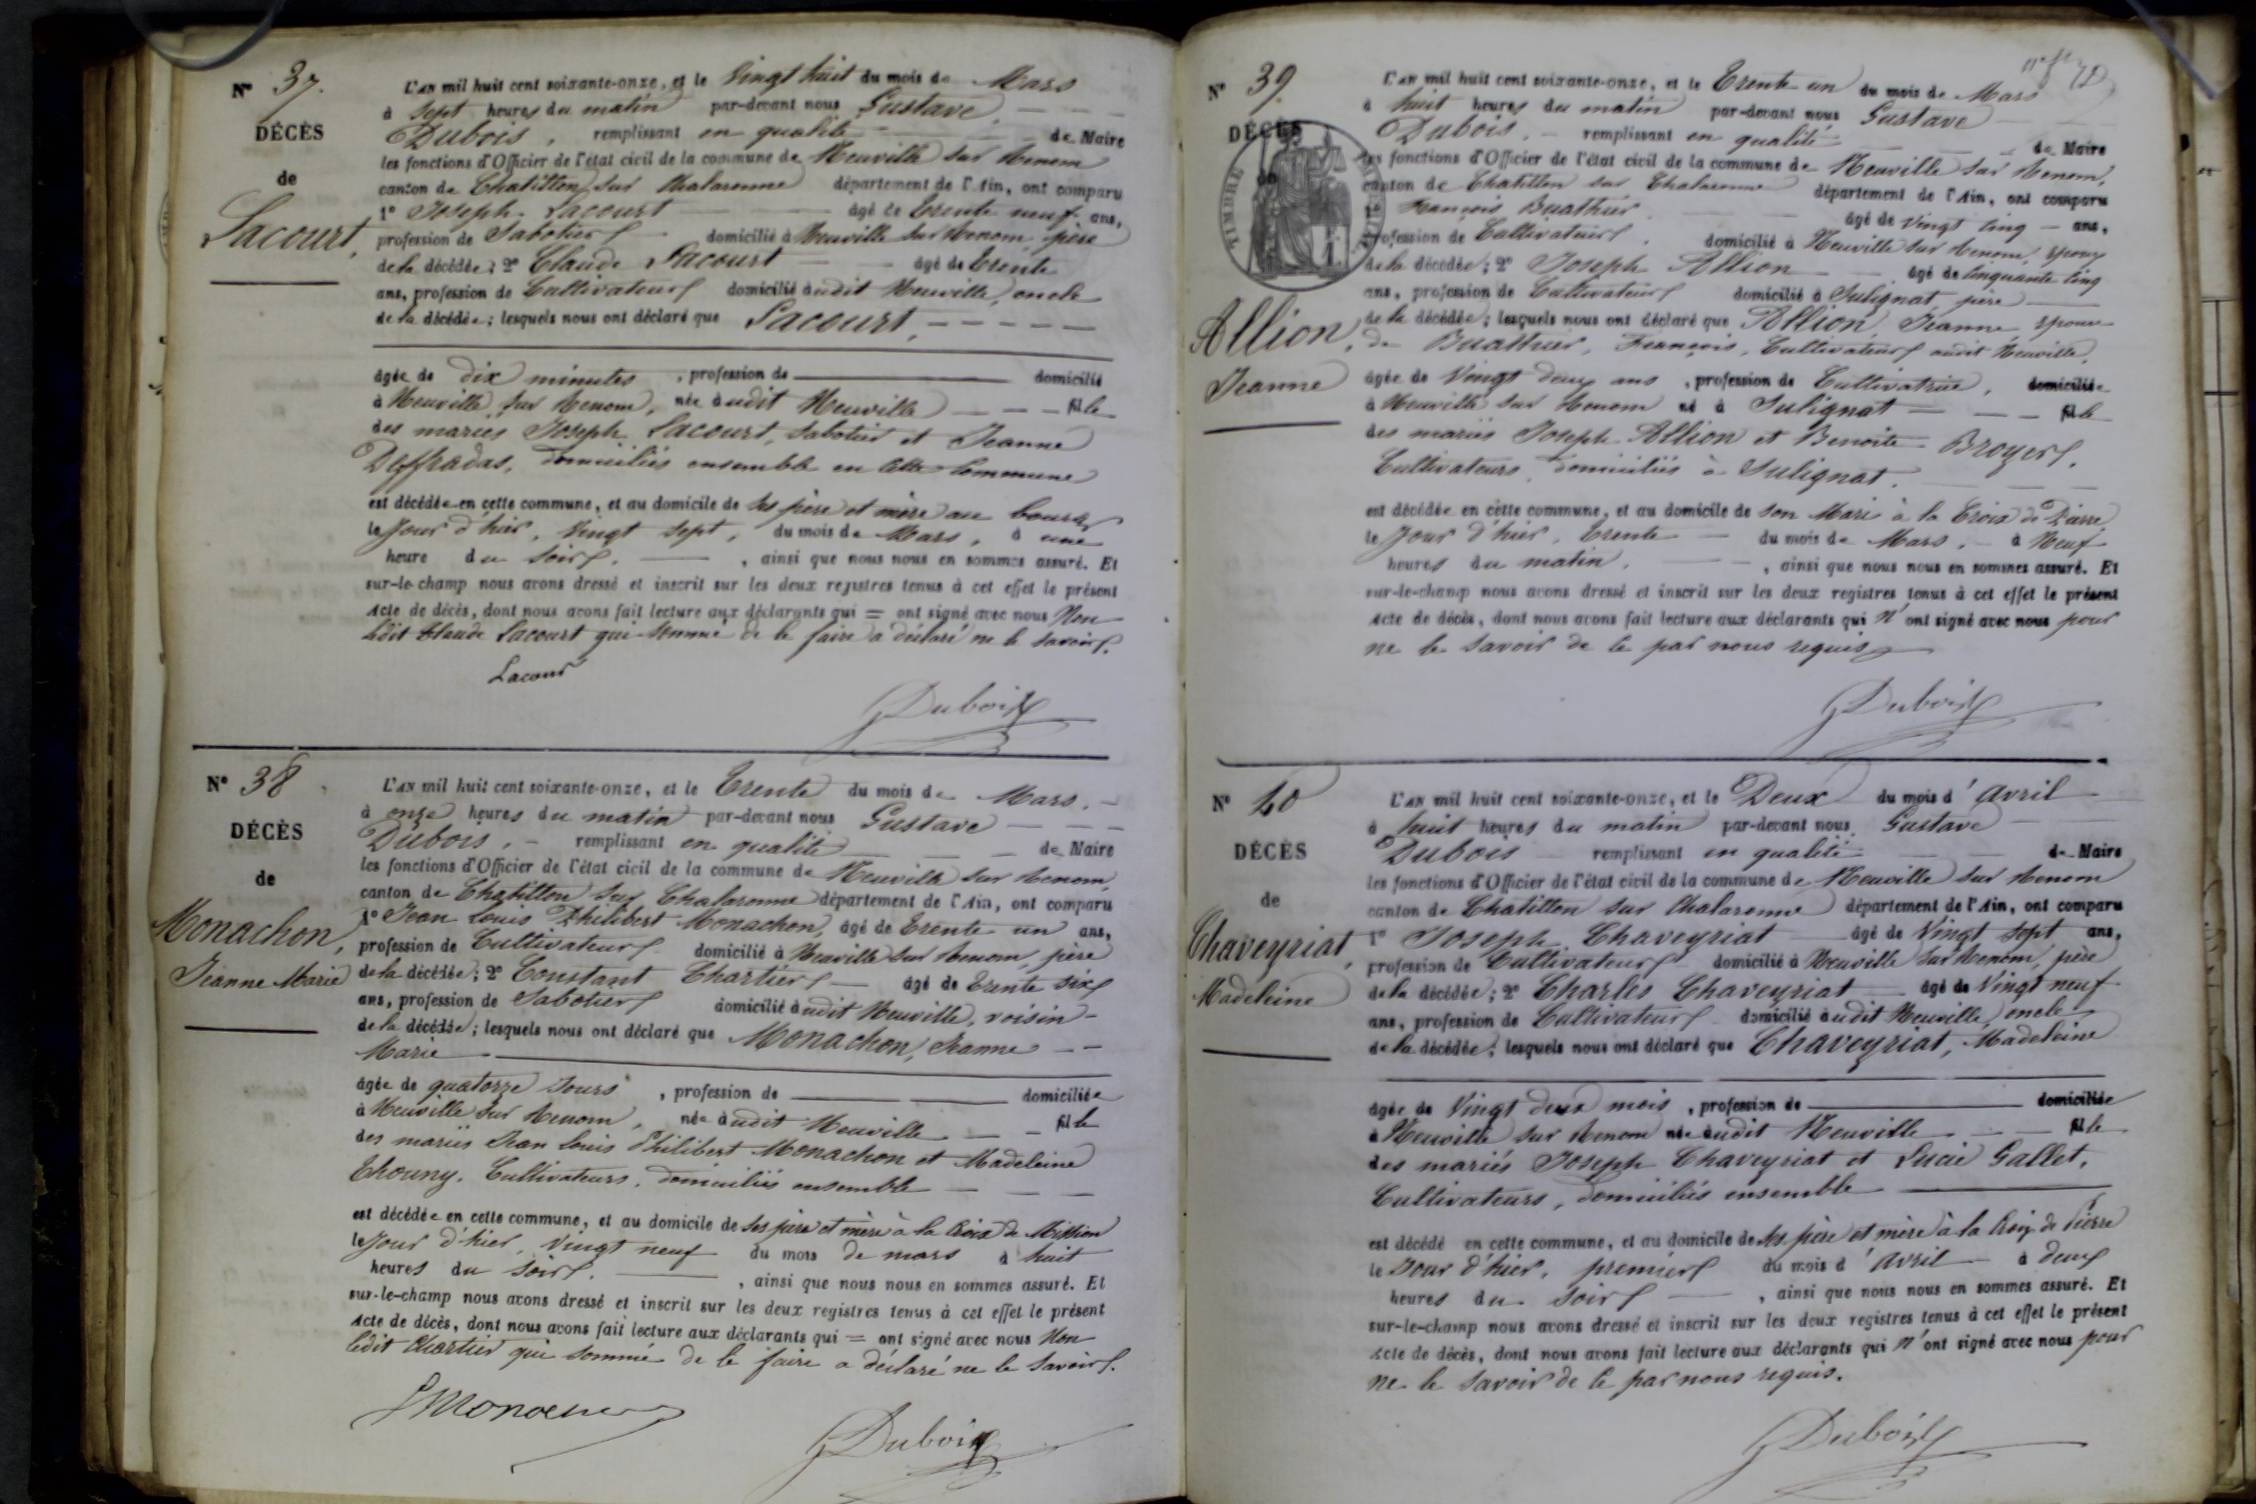 N° 37.
DÉCÈS
de
Lacourt,
L'AN mil huit cent soixante-onze, et le Vingt huit du mois de Mars
à sept heures du matin par-devant nous Gustave
Dubois, remplissant en qualité de Maire
les fonctions d'Officier de l'état civil de la commune de Neuville sur Renom
canton de Chatillon sur Chalaronne département de l'Ain, ont comparu
1° Joseph Lacourt âgé de trente neuf ans,
profession de Sabotier domicilié à Neuville sur Renom, père
de la décédée; 2° Claude Lacourt âgé de trente
ans, profession de Cultivateur domicilié audit Neuville, oncle
de la décédée; lesquels nous ont déclaré que Lacourt,
âgée de dix minutes, profession de domicilié
à Neuville sur Renom, née audit Neuville fille
des mariés Joseph Lacourt, sabotier et Jeanne
Deffradas, domiciliés ensemble en cette commune
est décédée en cette commune, et au domicile de ses père et mère au bourg
le jour d'hier, vingt sept, du mois de Mars, à une
heure du soir, ainsi que nous nous en sommes assuré. Et
sur-le-champ nous avons dressé et inscrit sur les deux registres tenus à cet effet le présent
Acte de décès, dont nous avons fait lecture aux déclarants qui = ont signé avec nous Non
ledit Claude Lacourt qui sommé de le faire a déclaré ne le savoir.
Lacour
GDubois
N° 38
DÉCÈS
de
Monachon,
Jeanne Marie
L'AN mil huit cent soixante-onze, et le Trente du mois de Mars.
à onze heures du matin par-devant nous Gustave
Dubois, remplissant en qualité de Maire
les fonctions d'Officier de l'état civil de la commune de Neuville sur Renom,
canton de Chatillon sur Chalaronne département de l'Ain, ont comparu
1° Jean Louis Philibert Monachon, âgé de trente un ans,
profession de Cultivateur domicilié à Neuville sur Renom, père
de la décédée; 2° Constant Chartier âgé de trente six
ans, profession de Sabotier domicilié audit Neuville, voisin
de la décédée; lesquels nous ont déclaré que Monachon, Jeanne
Marie
âgée de quatorze jours, profession de domiciliée
à Neuville sur Renom, née audit Neuville fille
des mariés Jean Louis Philibert Monachon et Madeleine
Thouny, Cultivateurs, domiciliés ensemble
est décédée en cette commune, et au domicile de ses père et mère à la Croix de Mission
le jour d'hier, vingt neuf du mois de mars à huit
heures du soir, ainsi que nous nous en sommes assuré. Et
sur-le-champ nous avons dressé et inscrit sur les deux registres tenus à cet effet le présent
Acte de décès, dont nous avons fait lecture aux déclarants qui = ont signé avec nous Non
ledit Chartier qui sommé de le faire a déclaré ne le savoir.
GDubois
N° 39
DÉCÈS
TIMBRE
Allion,
Jeanne
L'AN mil huit cent soixante-onze, et le Trente un du mois de Mars
à huit heures du matin par-devant nous Gustave
Dubois. remplissant en qualité de Maire
les fonctions d'Officier de l'état civil de la commune de Neuville sur Renom,
canton de Chatillon sur Chalaronne département de l'Ain, ont comparu
1° François Buathier âgé de vingt cinq ans,
profession de Cultivateur, domicilié à Neuville sur Renom, époux
de la décédée; 2° Joseph Allion âgé de cinquante cinq
ans, profession de Cultivateur domicilié à Sulignat, père
de la décédée; lesquels nous ont déclaré que Allion, Jeanne, épouse
de Buathier, François, Cultivateur audit Neuville,
âgée de Vingt deux ans, profession de Cultivatrice, domiciliée
à Neuville sur Renom né à Sulignat fille
des mariés Joseph Allion et Benoîte Broyer,
Cultivateurs, domiciliés à Sulignat.
est décédée en cette commune, et au domicile de son Mari à la Croix de Pierre
le jour d'hier, trente du mois de Mars. à Neuf
heures du matin, ainsi que nous nous en sommes assuré. Et
sur-le-champ nous avons dressé et inscrit sur les deux registres tenus à cet effet le présent
Acte de décès, dont nous avons fait lecture aux déclarants qui n'ont signé avec nous pour
ne le savoir de ce par nous requis
GDubois
N° 40
DÉCÈS
de
Chaveyriat,
Madeleine
L'AN mil huit cent soixante-onze, et le Deux du mois d'avril
à huit heures du matin par-devant nous Gustave
Dubois remplissant en qualité de Maire
les fonctions d'Officier de l'état civil de la commune de Neuville sur Renom
canton de Chatillon sur Chalaronne département de l'Ain, ont comparu
1° Joseph Chaveyriat âgé de Vingt sept ans,
profession de Cultivateur domicilié à Neuville sur Renom, père
de la décédée; 2° Charles Chaveyriat âgé de Vingt neuf
ans, profession de Cultivateur domicilié audit Neuville, oncle
de la décédée; lesquels nous ont déclaré que Chaveyriat, Madeleine
âgée de Vingt deux mois, profession de domiciliée
à Neuville sur Renom née audit Neuville fille
des mariés Joseph Chaveyriat et Lucie Gallet,
Cultivateurs, domiciliés ensemble
est décédé en cette commune, et au domicile de ses père et mère à la Croix de Pierre
le jour d'hier, premier du mois d'avril à deux
heures du soir, ainsi que nous nous en sommes assuré. Et
sur-le-champ nous avons dressé et inscrit sur les deux registres tenus à cet effet le présent
Acte de décès, dont nous avons fait lecture aux déclarants qui n'ont signé avec nous pour
ne le savoir de ce par nous requis.
GDubois